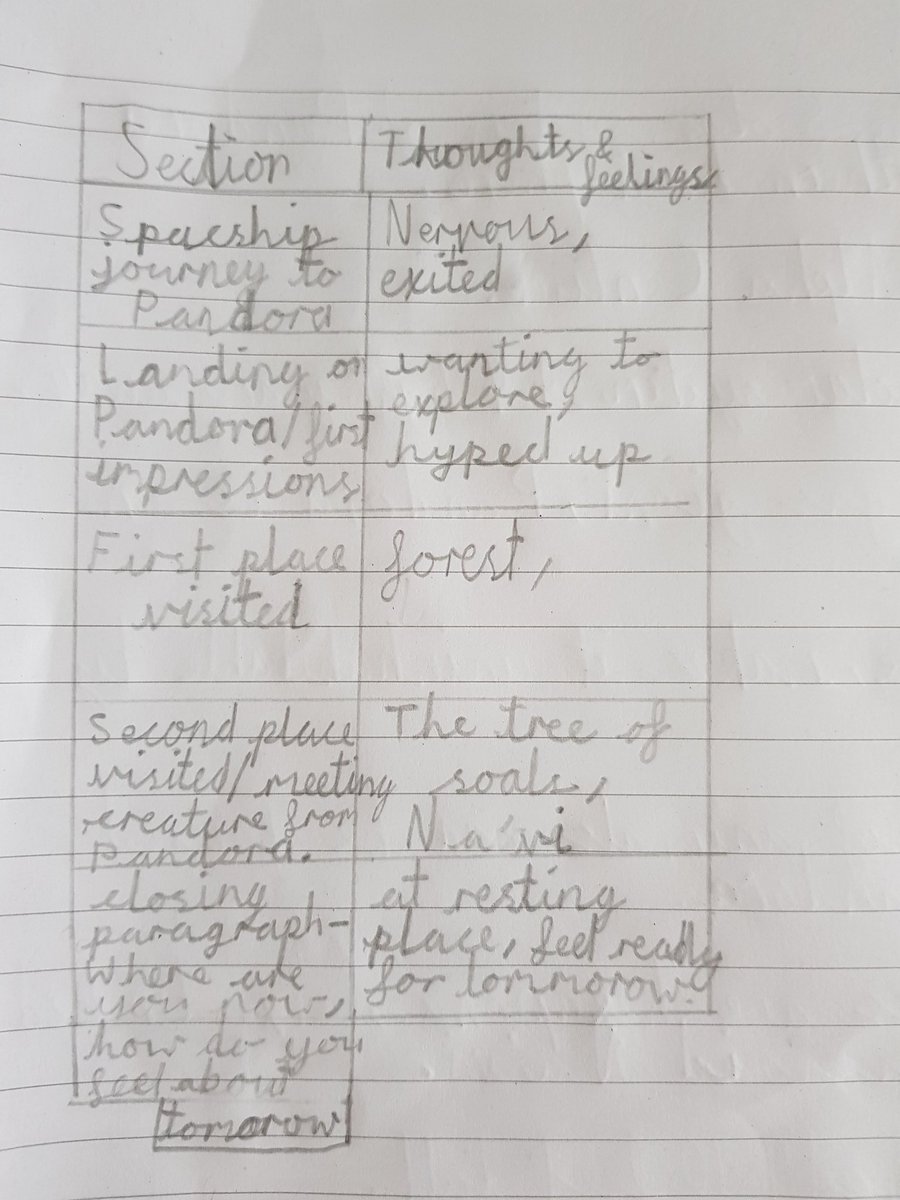 Section
Thoughts &
feelings
Spaceship
journey to
Pandora
Nervous,
exited
Landing on
Pandora/first
impressions
wanting to
explore,
hyped up
First place
visited
forest,
Second place
visited/meeting
creature from
Pandora.
The tree of
soals,
Na'vi
closing
paragraph-
where are
you now,
how do you
feel about
tomorow
at resting
place, feel ready
for tommorow